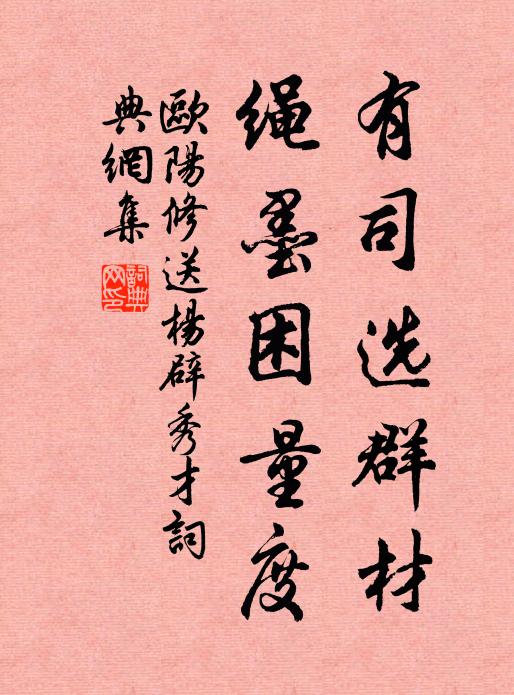 有司选群材
绳墨困量度
歐陽修送楊辟秀才詞
典網集
詞典
网印